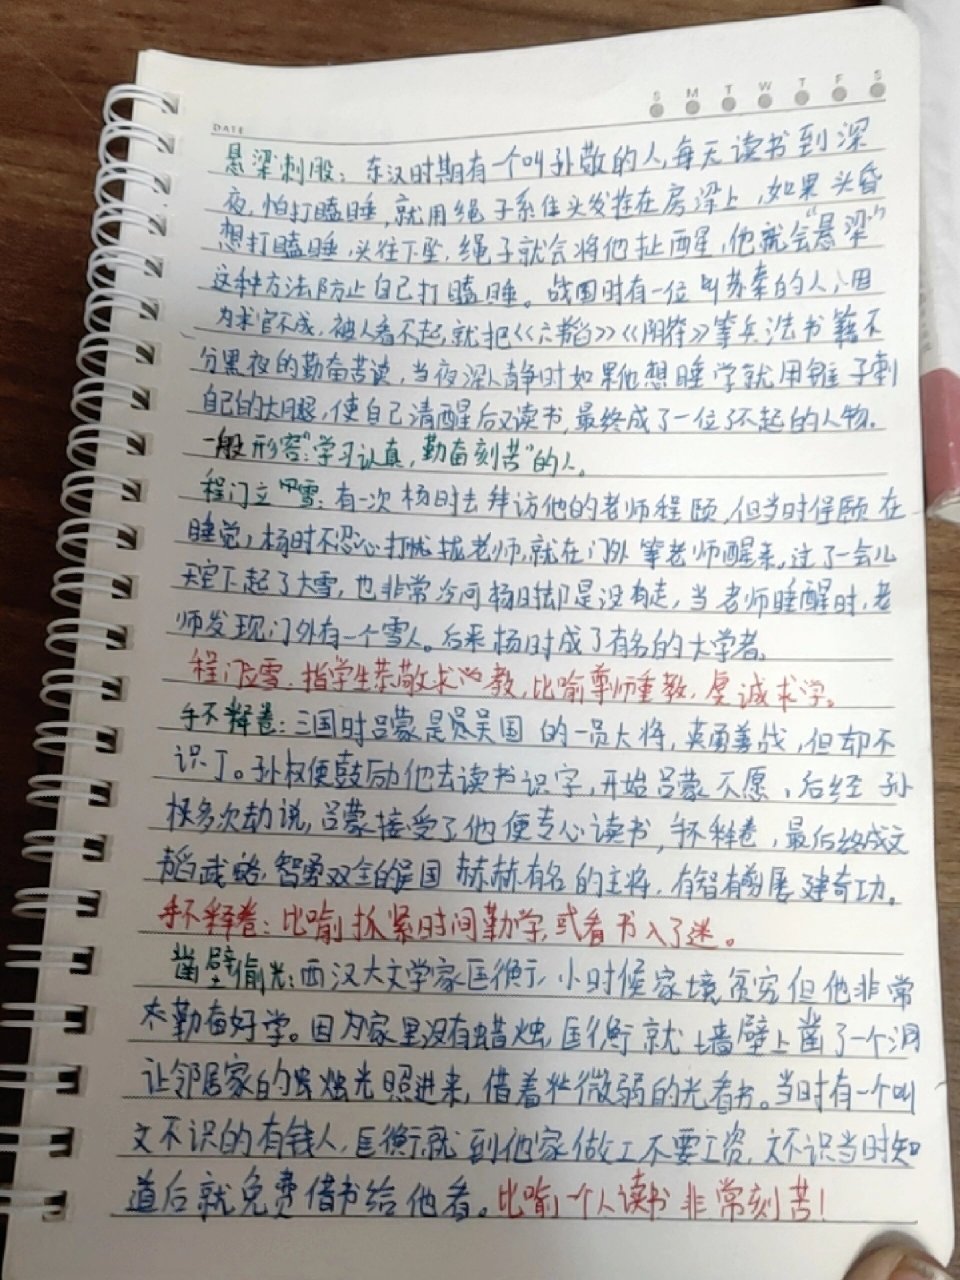 S M T W T F S
DATE
悬梁刺股：东汉时期有一个叫孙敬的人，每天读书到深
夜，怕打瞌睡，就用绳子系住头发拴在房梁上，如果头昏
想打瞌睡，头往下坠，绳子就会将他扯醒，他就会"悬梁"
这种方法防止自己打瞌睡。战国时有一位叫苏秦的人，因
为求官不成，被人看不起，就把《六韬》《阴符》等兵法书籍不
分黑夜的勤奋苦读，当夜深人静时如果他想睡学就用锥子刺
自己的大腿，使自己清醒后又读书，最终成了一位了不起的人物。
一般形容："学习认真，勤奋刻苦"的人。
程门立雪：有一次杨时去拜访他的老师程颐，但当时程颐在
睡觉，杨时不忍心打扰老师，就在门外等老师醒来，过了一会儿
天空下起了大雪，也非常冷问杨时却是没有走，当老师睡醒时，老
师发现门外有一个雪人。后来杨时成了有名的大学者。
程门立雪：指学生恭敬求教，比喻尊师重教，虔诚求学。
手不释卷：三国时吕蒙是吴国的一员大将，英勇善战，但却不
识丁。孙权便鼓励他去读书识字，开始吕蒙不愿，后经孙
权多次劝说，吕蒙接受了他便专心读书，手不释卷，最后终成文
韬武略，智勇双全的吴国赫赫有名的主将，有智有勇屡建奇功。
手不释卷：比喻抓紧时间勤学，或看书入了迷。
凿壁偷光：西汉大文学家匡衡，小时候家境贫穷但他非常
勤奋好学。因为家里没有蜡烛，匡衡就墙壁上凿了一个洞
让邻居家的蜡烛光照进来，借着微弱的光看书。当时有一个叫
文不识的有钱人，匡衡就到他家做工不要工资，文不识当时知
道后就免费借书给他看。比喻一个人读书非常刻苦！